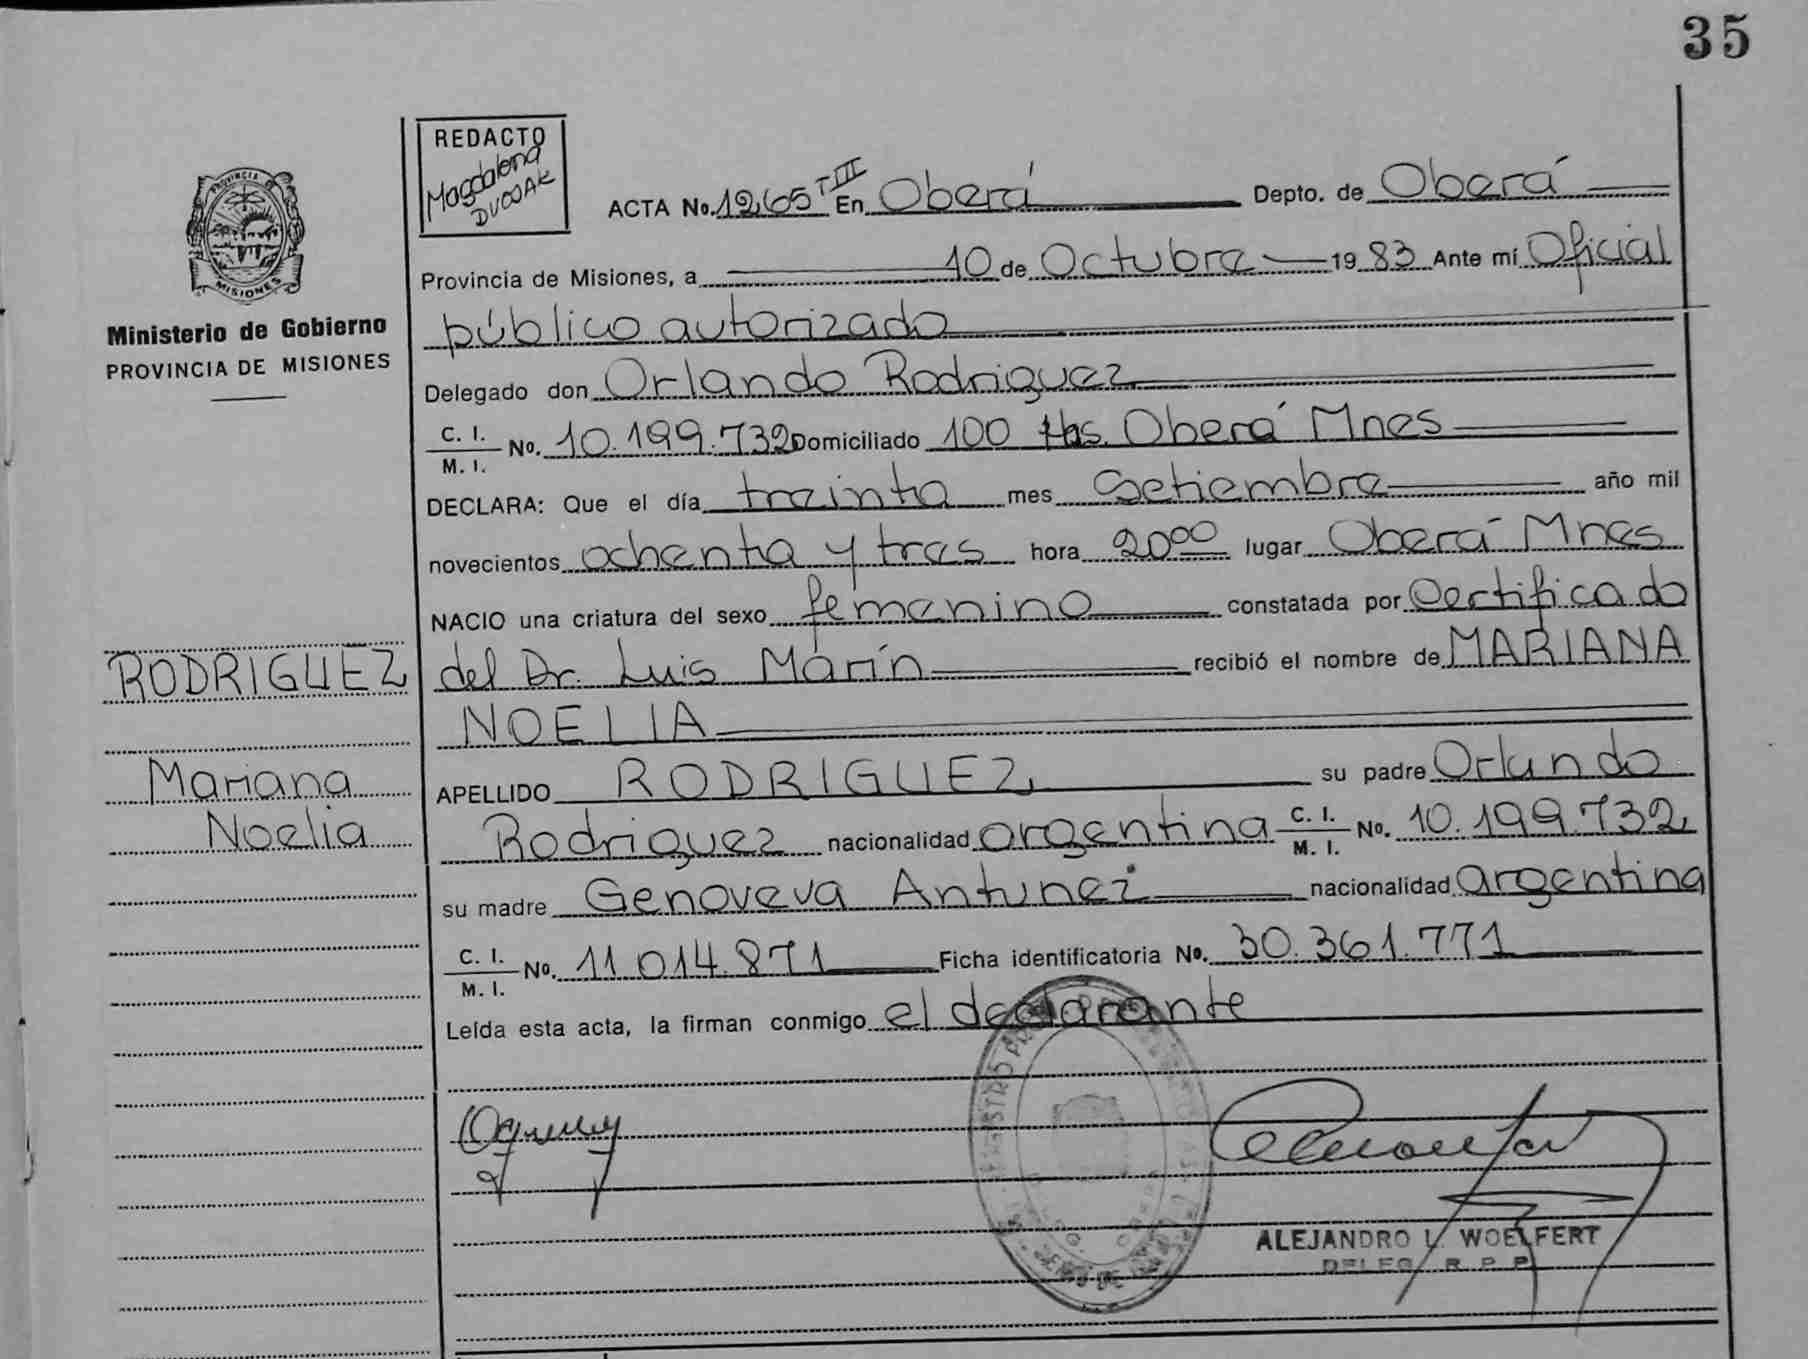 35
REDACTO
Magdalena
DUCSAK
PROVINCIA DE
MISIONES
Ministerio de Gobierno
PROVINCIA DE MISIONES
ACTA No. 1265 T III En Oberá Depto. de Oberá
Provincia de Misiones, a 10 de Octubre 19 83 Ante mí Oficial
público autorizado
Delegado don Orlando Rodriguez
C. I.
M. I. No. 10.199.732 Domiciliado 100 Hs. Oberá Mnes
DECLARA: Que el día treinta mes Setiembre año mil
novecientos ochenta y tres hora 20 00 lugar Oberá Mnes
NACIO una criatura del sexo femenino constatada por Certificado
del Dr. Luis Marín recibió el nombre de MARIANA
NOELIA
RODRIGUEZ
Mariana
Noelia
APELLIDO RODRIGUEZ su padre Orlando
Rodriguez nacionalidad argentina C. I.
M. I. No. 10.199.732
su madre Genoveva Antunez nacionalidad argentina
C. I.
M. I. No. 11.014.871 Ficha identificatoria No. 30.361.771
Leída esta acta, la firman conmigo el declarante
ALEJANDRO L. WOELFERT
DELEG. R. P. P.